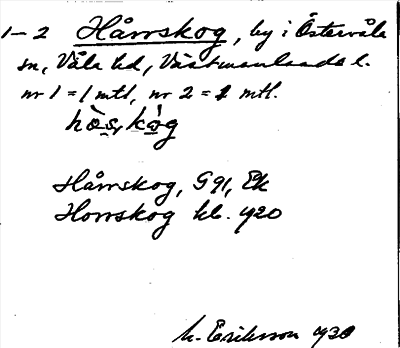 1–2 Hårrskog, by i Östervåla
sn, Våla hd, Västmanlands l.
nr 1 = 1 mtl, nr 2 = 1 mtl.
hòs, kòg
Hårrskog, G91, Ek
Horrskog kb. 1920
M. Eriksson 1930